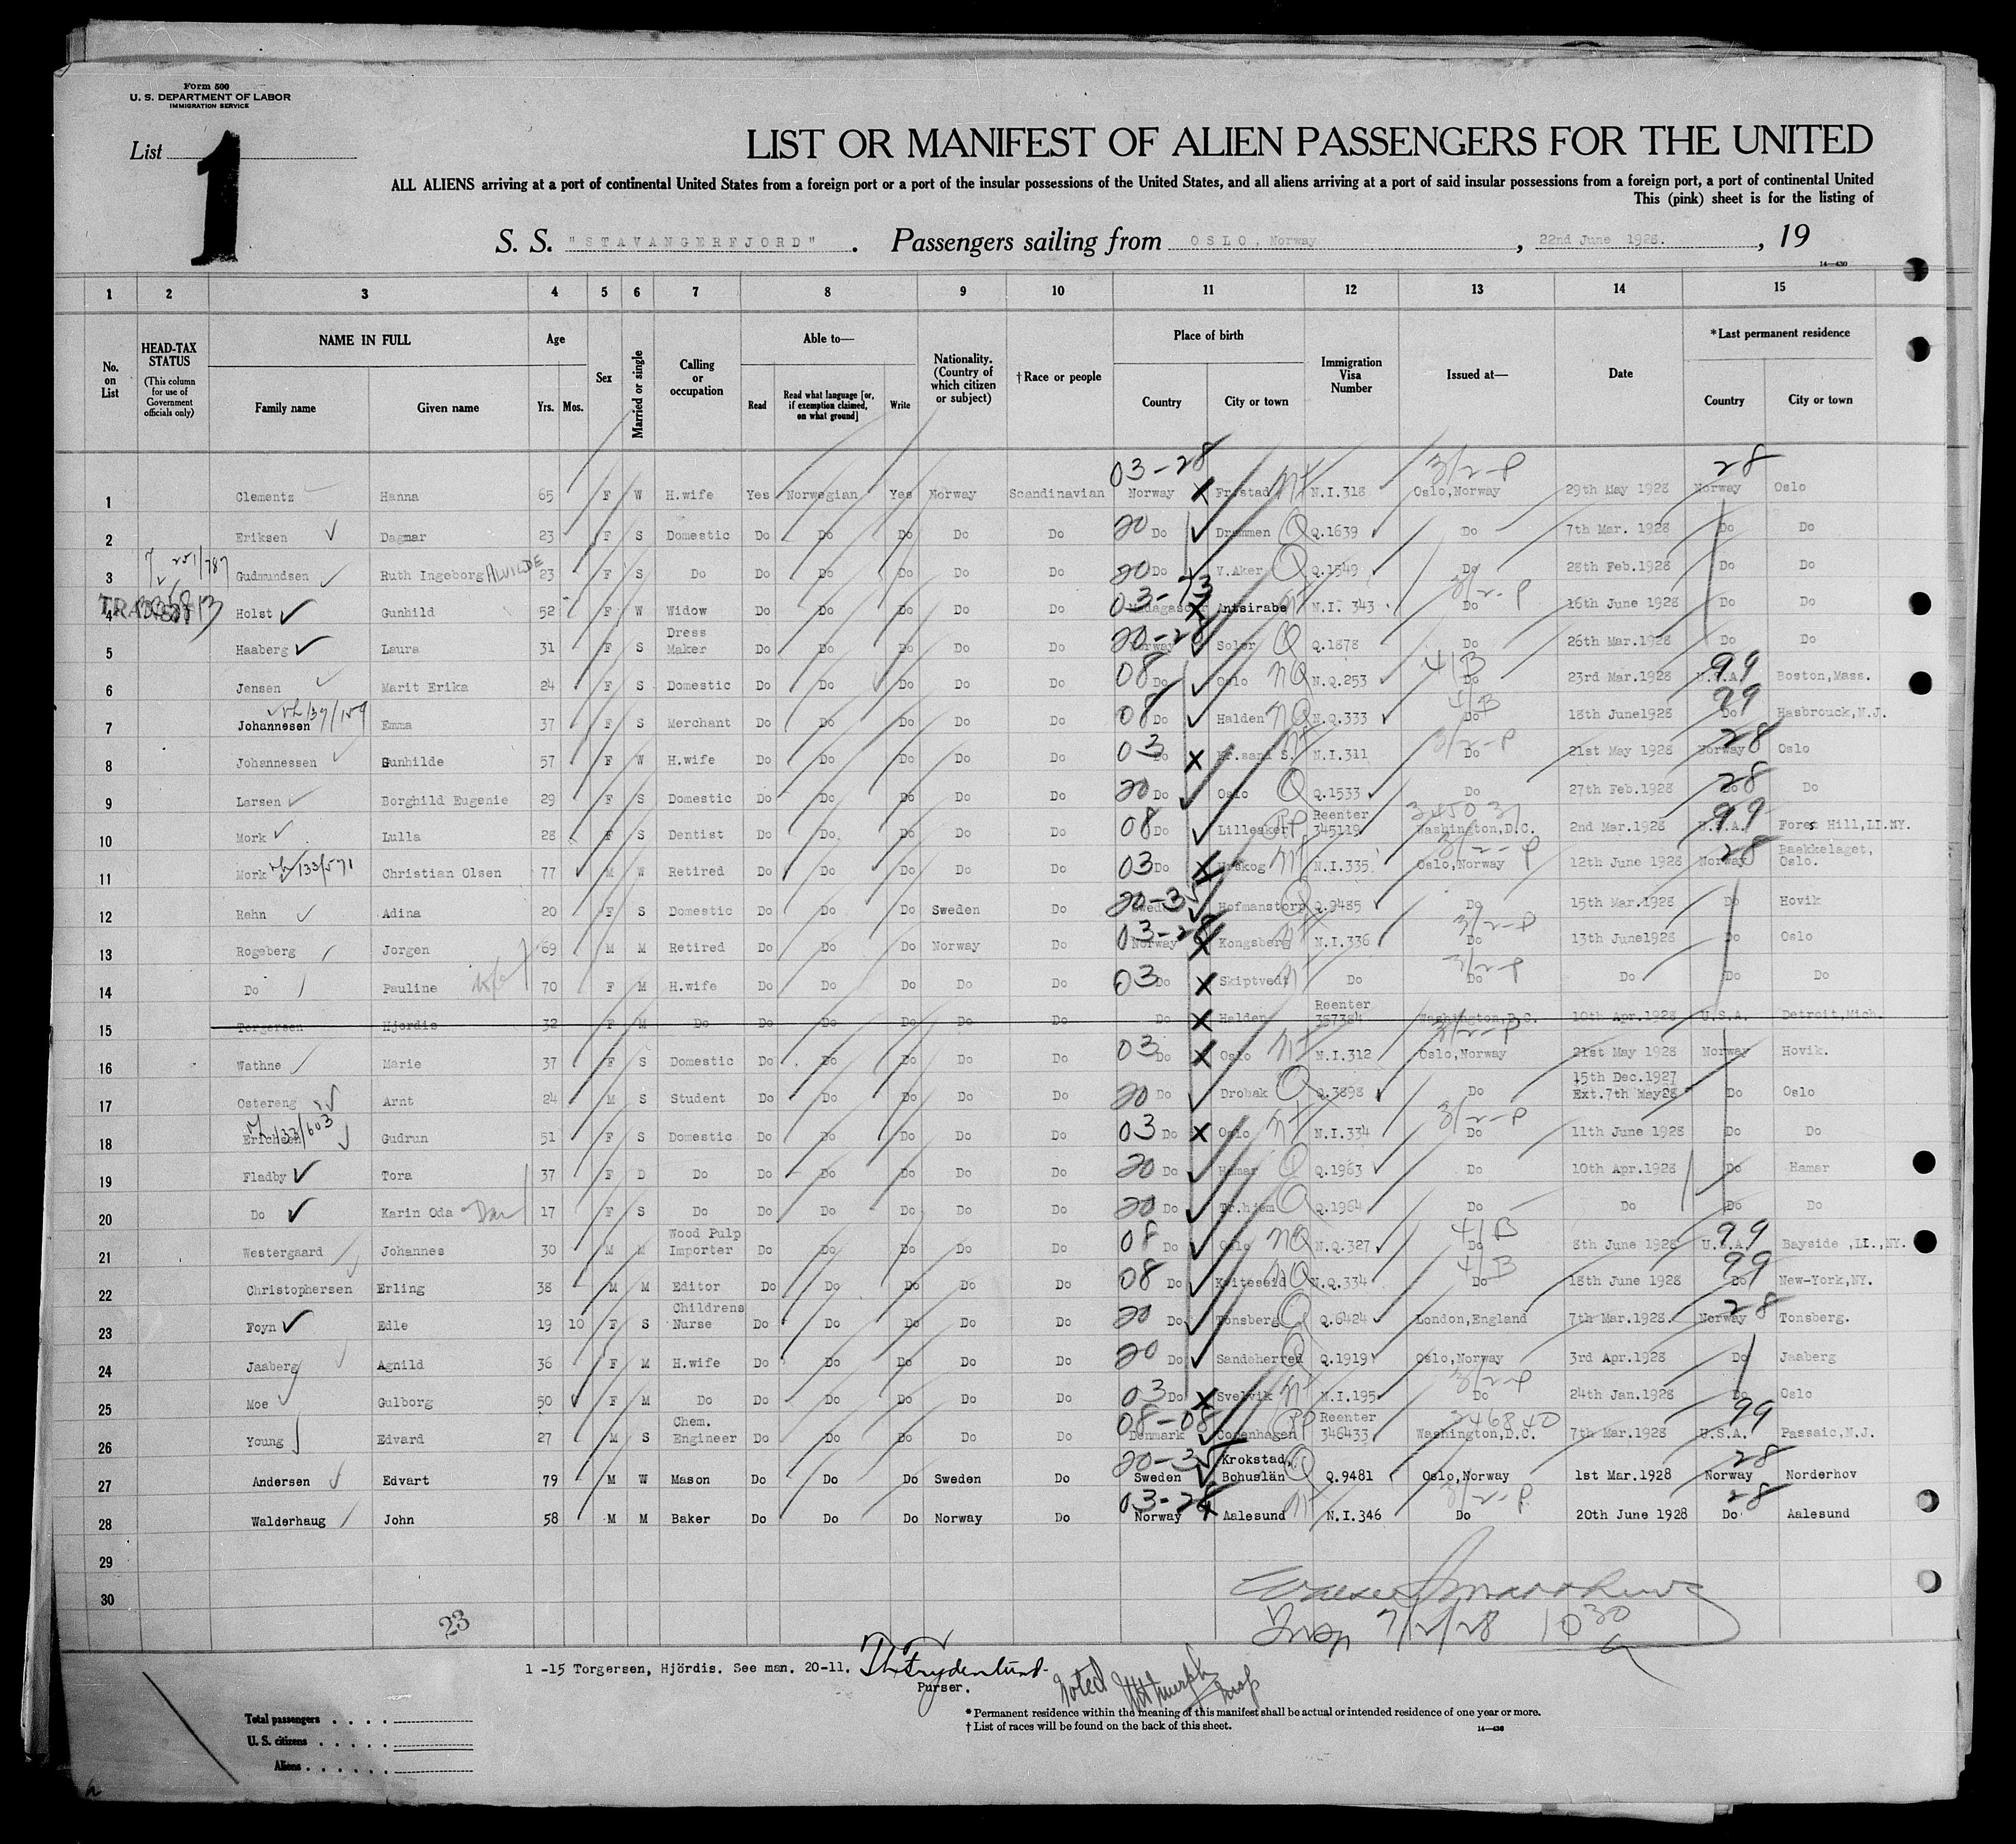 Form 500
U. S. DEPARTMENT OF LABOR
IMMIGRATION SERVICE
List 1
LIST OR MANIFEST OF ALIEN PASSENGERS FOR THE UNITED
ALL ALIENS arriving at a port of continental United States from a foreign port or a port of the insular possessions of the United States, and all aliens arriving at a port of said insular possessions from a foreign port, a port of continental United
This (pink) sheet is for the listing of
S. S. "STAVANGERFJORD". Passengers sailing from OSLO, Norway, 22nd June 1928., 19
14—430
1 2 3 4 5 6 7 8 9 10 11 12 13 14 15
No. on List HEAD-TAX STATUS (This column for use of Government officials only) NAME IN FULL Family name Given name Age Yrs. Mos. Sex Married or single Calling or occupation Able to— Read Read what language [or, if exemption claimed, on what ground] Write Nationality. (Country of which citizen or subject) † Race or people Place of birth Country City or town Immigration Visa Number Issued at— Date *Last permanent residence Country City or town
03-28 3/2-P 28
1 Clementz Hanna 65 F W H.wife Yes Norwegian Yes Norway Scandinavian Norway Frestad N.I.318 Oslo,Norway 29th May 1928 Norway Oslo
2 Eriksen Dagmar 23 F S Domestic Do Do Do Do Do 20 Do Drammen Q Q.1639 Do 7th Mar. 1928 Do Do
3 Gudmundsen Ruth Ingeborg ALVILDE 23 F S Do Do Do Do Do Do 20 Do V.Aker Q Q.1549 Do 28th Feb.1928 Do Do
4 TRANSIT Holst Gunhild 52 F W Widow Do Do Do Do Do 03-73 Madagascar Antsirabe N.I. 343 3/2-P Do 16th June 1928 Do Do
5 Haaberg Laura 31 F S Dress Maker Do Do Do Do Do 20-28 Norway Solør Q Q.1878 Do 26th Mar.1928 Do Do
6 Jensen Marit Erika 24 F S Domestic Do Do Do Do Do 08 Do Oslo NQ N.Q.253 4/B Do 23rd Mar.1928 99 U.S.A. Boston,Mass.
7 Johannesen Emma 37 F S Merchant Do Do Do Do Do 08 Do Halden NQ N.Q.333 4/B Do 18th June1928 99 Do Hasbrouck,N.J.
8 Johannessen Gunhilde 57 F W H.wife Do Do Do Do Do 03 Do Kr.sand S. N.I.311 3/2-P Do 21st May 1928 28 Norway Oslo
9 Larsen Borghild Eugenie 29 F S Domestic Do Do Do Do Do 20 Do Oslo Q Q.1533 Do 27th Feb.1928 28 Do Do
10 Mork Lulla 28 F S Dentist Do Do Do Do Do 08 Do Lilleaker RP Reenter 345119 Washington,D.C. 2nd Mar.1928 99 U.S.A. Forest Hill,LI.NY.
11 Mork Christian Olsen 77 M W Retired Do Do Do Do Do 03 Do N.I.335 3/2-P Oslo,Norway 12th June 1928 28 Norway Baekkelaget, Oslo.
12 Rehn Adina 20 F S Domestic Do Do Do Sweden Do 20-35 Sweden Hofmanstorp Q Q.9485 Do 15th Mar.1928 Do Hovik
13 Rogeberg Jorgen 69 M M Retired Do Do Do Norway Do 03-28 Norway Kongsberg N.I.336 3/2-P Do 13th June1928 Do Oslo
14 Do Pauline 70 F M H.wife Do Do Do Do Do 03 Do Skiptvedt Do 3/2-P Do Do Do Do
15 Torgersen Hjordis 32 F M Do Do Do Do Do Do Do Halden Reenter 357384 Washington,D.C. 10th Apr.1928 U.S.A. Detroit,Mich.
16 Wathne Marie 37 F S Domestic Do Do Do Do Do 03 Do Oslo N.I.312 3/2-P Oslo,Norway 21st May 1928 Norway Hovik.
17 Ostereng Arnt 24 M S Student Do Do Do Do Do 20 Do Drobak Q Q.3898 Do 15th Dec.1927 Ext.7th May28 Do Oslo
18 Erichsen Gudrun 51 F S Domestic Do Do Do Do Do 03 Do Oslo N.I.334 3/2-P Do 11th June 1928 Do Do
19 Fladby Tora 37 F D Do Do Do Do Do Do 20 Do Hamar Q Q.1963 Do 10th Apr.1928 Do Hamar
20 Do Karin Oda Dau 17 F S Do Do Do Do Do Do 20 Do Tr.hjem Q Q.1964 Do Do Do Do
21 Westergaard Johannes 30 M M Wood Pulp Importer Do Do Do Do Do 08 Do Oslo NQ N.Q.327 4/B Do 8th June 1928 99 U.S.A. Bayside ,LI.,NY.
22 Christophersen Erling 38 M M Editor Do Do Do Do Do 08 Do Kviteseid NQ N.Q.334 4/B Do 18th June 1928 99 Do New-York,NY.
23 Foyn Edle 19 10 F S Childrens Nurse Do Do Do Do Do 20 Do Tonsberg Q Q.6424 London,England 7th Mar.1928 28 Norway Tonsberg.
24 Jaaberg Agnild 36 F M H.wife Do Do Do Do Do 20 Do Sandeherred Q Q.1919 Oslo,Norway 3rd Apr.1928 Do Jaaberg
25 Moe Gulborg 50 F M Do Do Do Do Do Do 03 Do Svelvik N.I.195 3/2-P Do 24th Jan.1928 Do Oslo
26 Young Edvard 27 M S Chem. Engineer Do Do Do Do Do 08-08 Denmark Copenhagen RP Reenter 346433 346840 Washington,D.C. 7th Mar.1928 99 U.S.A. Passaic,N.J.
27 Andersen Edvart 79 M W Mason Do Do Do Sweden Do 20-35 Sweden Krokstad, Bohuslän Q Q.9481 Oslo,Norway 1st Mar.1928 28 Norway Norderhov
28 Walderhaug John 58 M M Baker Do Do Do Norway Do 03-28 Norway Aalesund N.I.346 3/2-P. Do 20th June 1928 28 Do Aalesund
29
30
23
Insp 7/2/28 10 30 a
1 -15 Torgersen, Hjördis. See man. 20-11.
Purser.
noted
Insp
* Permanent residence within the meaning of this manifest shall be actual or intended residence of one year or more.
† List of races will be found on the back of this sheet.
14—430
Total passengers
U. S. citizens
Aliens